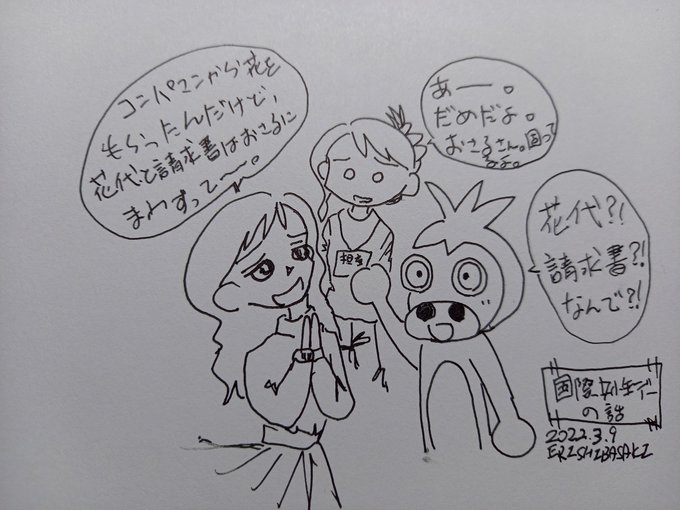 コンパマンから花を
もらったんだけど、
花代と請求書はおさるに
まわすって〜。
あー。
だめだよ。
おさるさん。困って
るよ。
担当
花代?!
請求書?!
なんで?!
国際女性デー
の話
2022.3.9
ERI SHIBASAKI